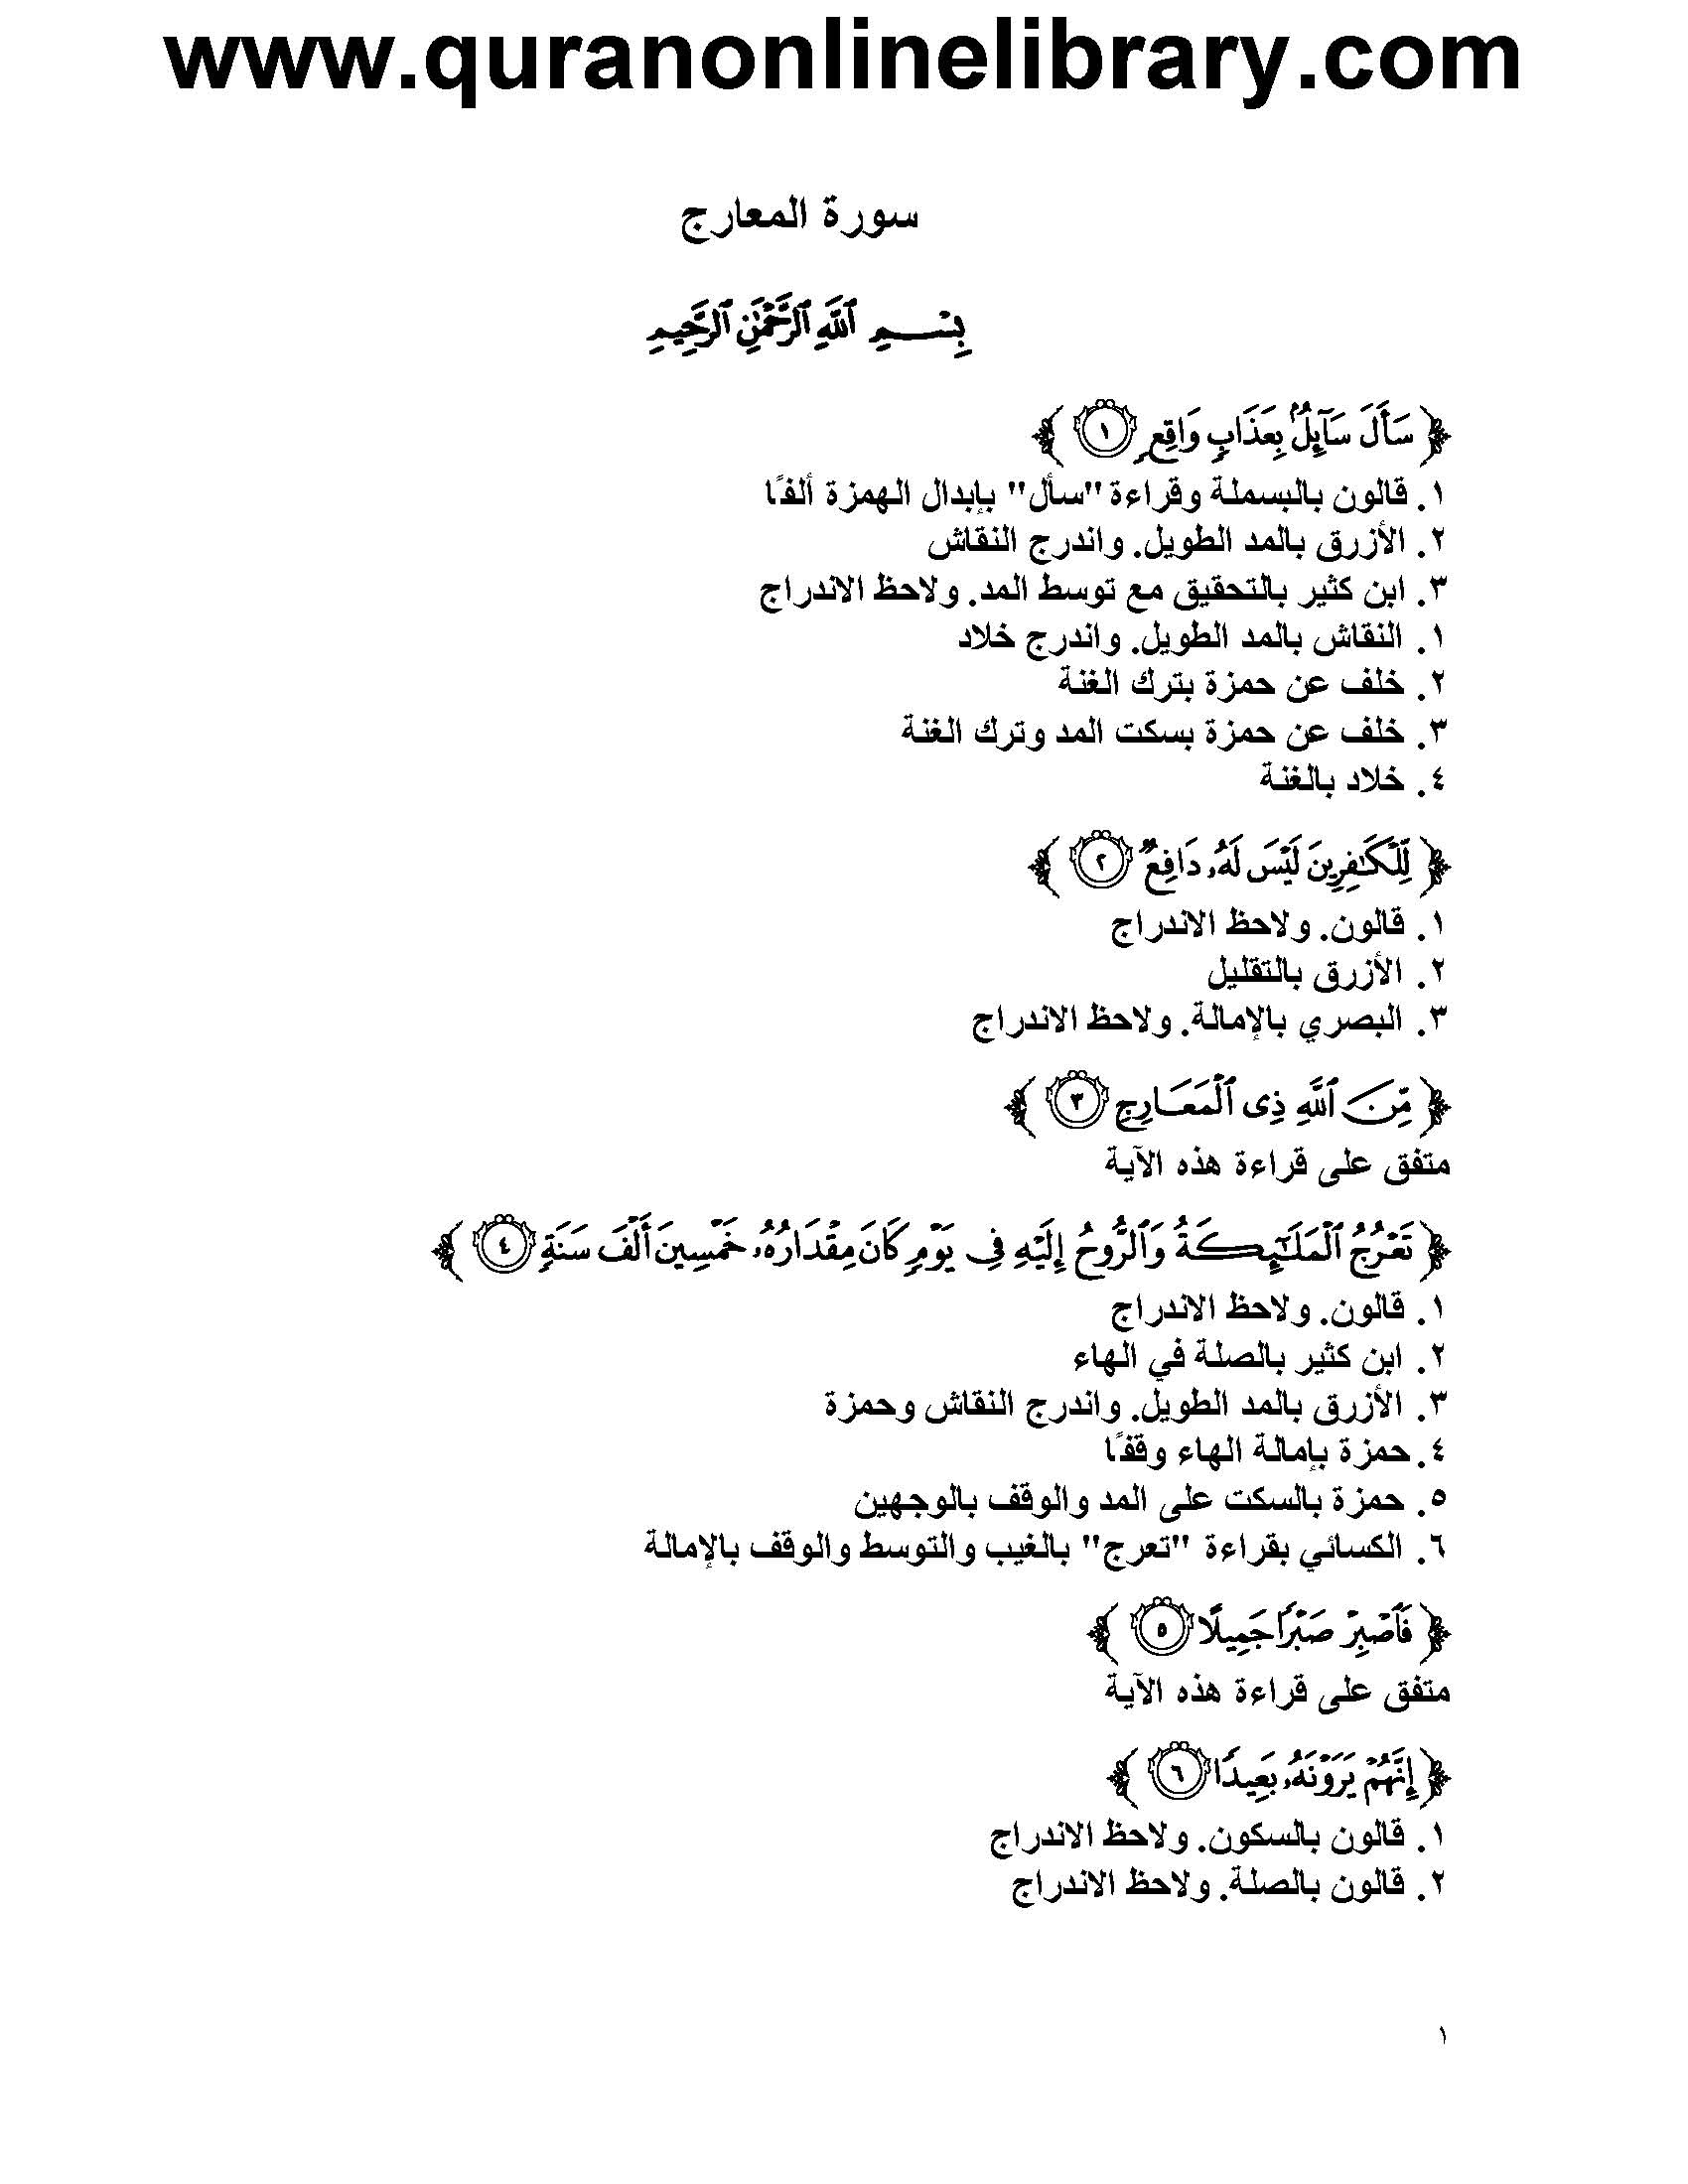 www.quranonlinelibrary.com
سورة المعارج
بِسْمِ ٱللَّهِ ٱلرَّحْمَٰنِ ٱلرَّحِيمِ
﴿ سَأَلَ سَآئِلٌۢ بِعَذَابٍ وَاقِعٍ ١ ﴾
١. قالون بالبسملة وقراءة "سأل" بإبدال الهمزة ألفًا
٢. الأزرق بالمد الطويل. واندرج النقاش
٣. ابن كثير بالتحقيق مع توسط المد. ولاحظ الاندراج
١. النقاش بالمد الطويل. واندرج خلاد
٢. خلف عن حمزة بترك الغنة
٣. خلف عن حمزة بسكت المد وترك الغنة
٤. خلاد بالغنة
﴿ لِّلْكَٰفِرِينَ لَيْسَ لَهُۥ دَافِعٌ ٢ ﴾
١. قالون. ولاحظ الاندراج
٢. الأزرق بالتقليل
٣. البصري بالإمالة. ولاحظ الاندراج
﴿ مِّنَ ٱللَّهِ ذِى ٱلْمَعَارِجِ ٣ ﴾
متفق على قراءة هذه الآية
﴿ تَعْرُجُ ٱلْمَلَٰٓئِكَةُ وَٱلرُّوحُ إِلَيْهِ فِى يَوْمٍ كَانَ مِقْدَارُهُۥ خَمْسِينَ أَلْفَ سَنَةٍ ٤ ﴾
١. قالون. ولاحظ الاندراج
٢. ابن كثير بالصلة في الهاء
٣. الأزرق بالمد الطويل. واندرج النقاش وحمزة
٤. حمزة بإمالة الهاء وقفًا
٥. حمزة بالسكت على المد والوقف بالوجهين
٦. الكسائي بقراءة "تعرج" بالغيب والتوسط والوقف بالإمالة
﴿ فَٱصْبِرْ صَبْرًا جَمِيلًا ٥ ﴾
متفق على قراءة هذه الآية
﴿ إِنَّهُمْ يَرَوْنَهُۥ بَعِيدًا ٦ ﴾
١. قالون بالسكون. ولاحظ الاندراج
٢. قالون بالصلة. ولاحظ الاندراج
١